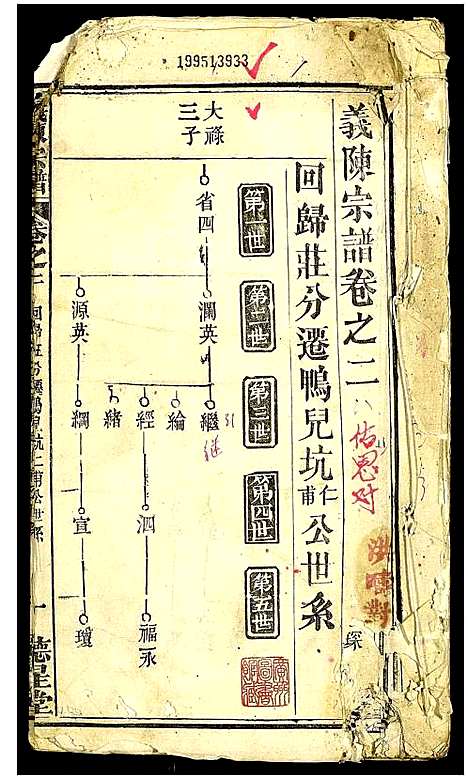 199513933
義陳宗譜卷之二
回歸莊分遷鴨兒坑仁甫公世系
第一世
第二世
第三世
第四世
第五世
大祿
三子
省四
瀾英
源英
繼
綸
經
緒
綱
泗
宣
福永
瓊
继
德星堂